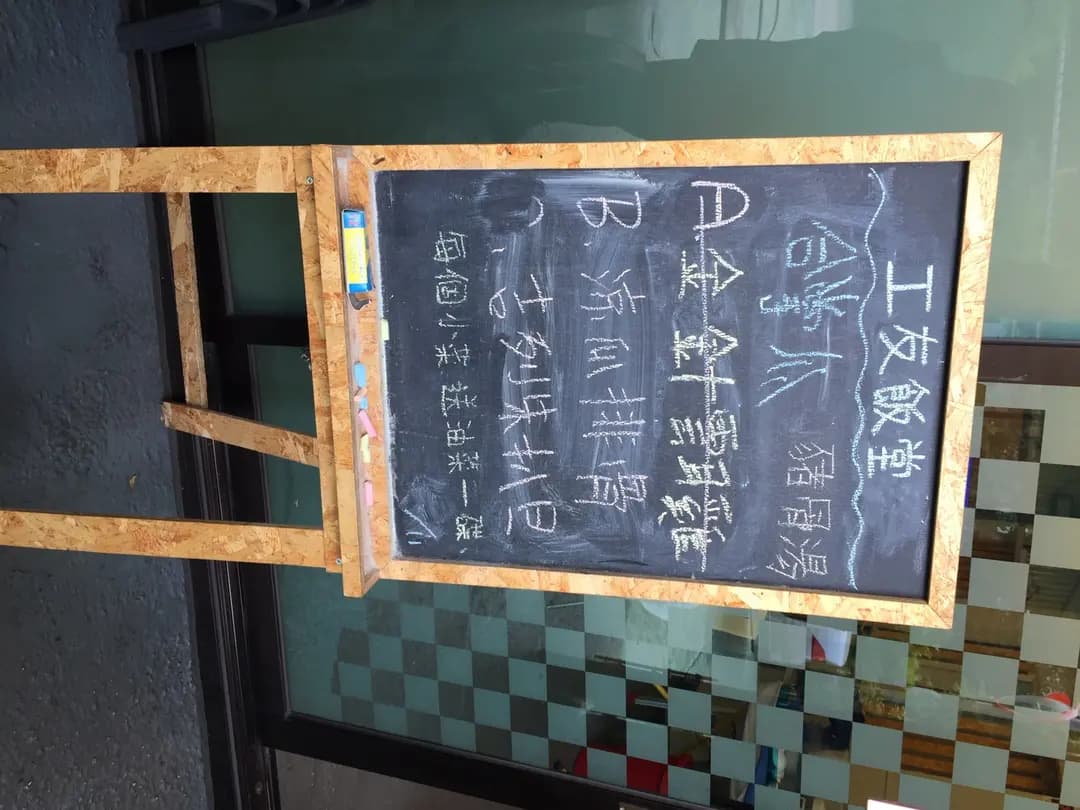 工友飯堂
合掌瓜 豬骨湯
A 金針雲耳雞
B. 涼瓜排骨
吉列 扒旦
每個小菜送油菜一碟